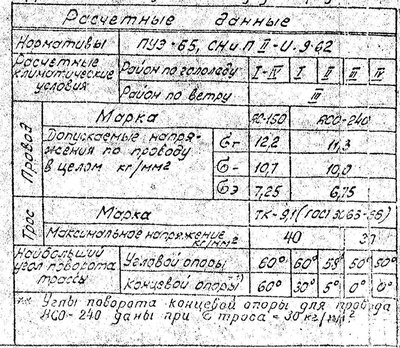 Расчетные данные
Нормативы ПУЭ-65, СНиП II-И.9-62
Расчетные климатические условия
Район по гололеду I-IV I II III IV
Район по ветру III
Провод
Марка АС-150 АСО-240
Допускаемые напряжения по проводу в целом кг/мм²
σг 12,2 11,3
σ- 10,7 10,0
σэ 7,25 6,75
Трос
Марка ТК-9,1 (ГОСТ 3063-
Максимальное напряжение кг/мм² 40
Наибольший угол поворота трассы
Угловой опоры 60° 60° 58° 50° 50°
Концевой опоры 60° 30° 5° 0° 0°
Углы поворота концевой опоры для провода
АСО-240 даны при σ троса = 30 кг/мм²